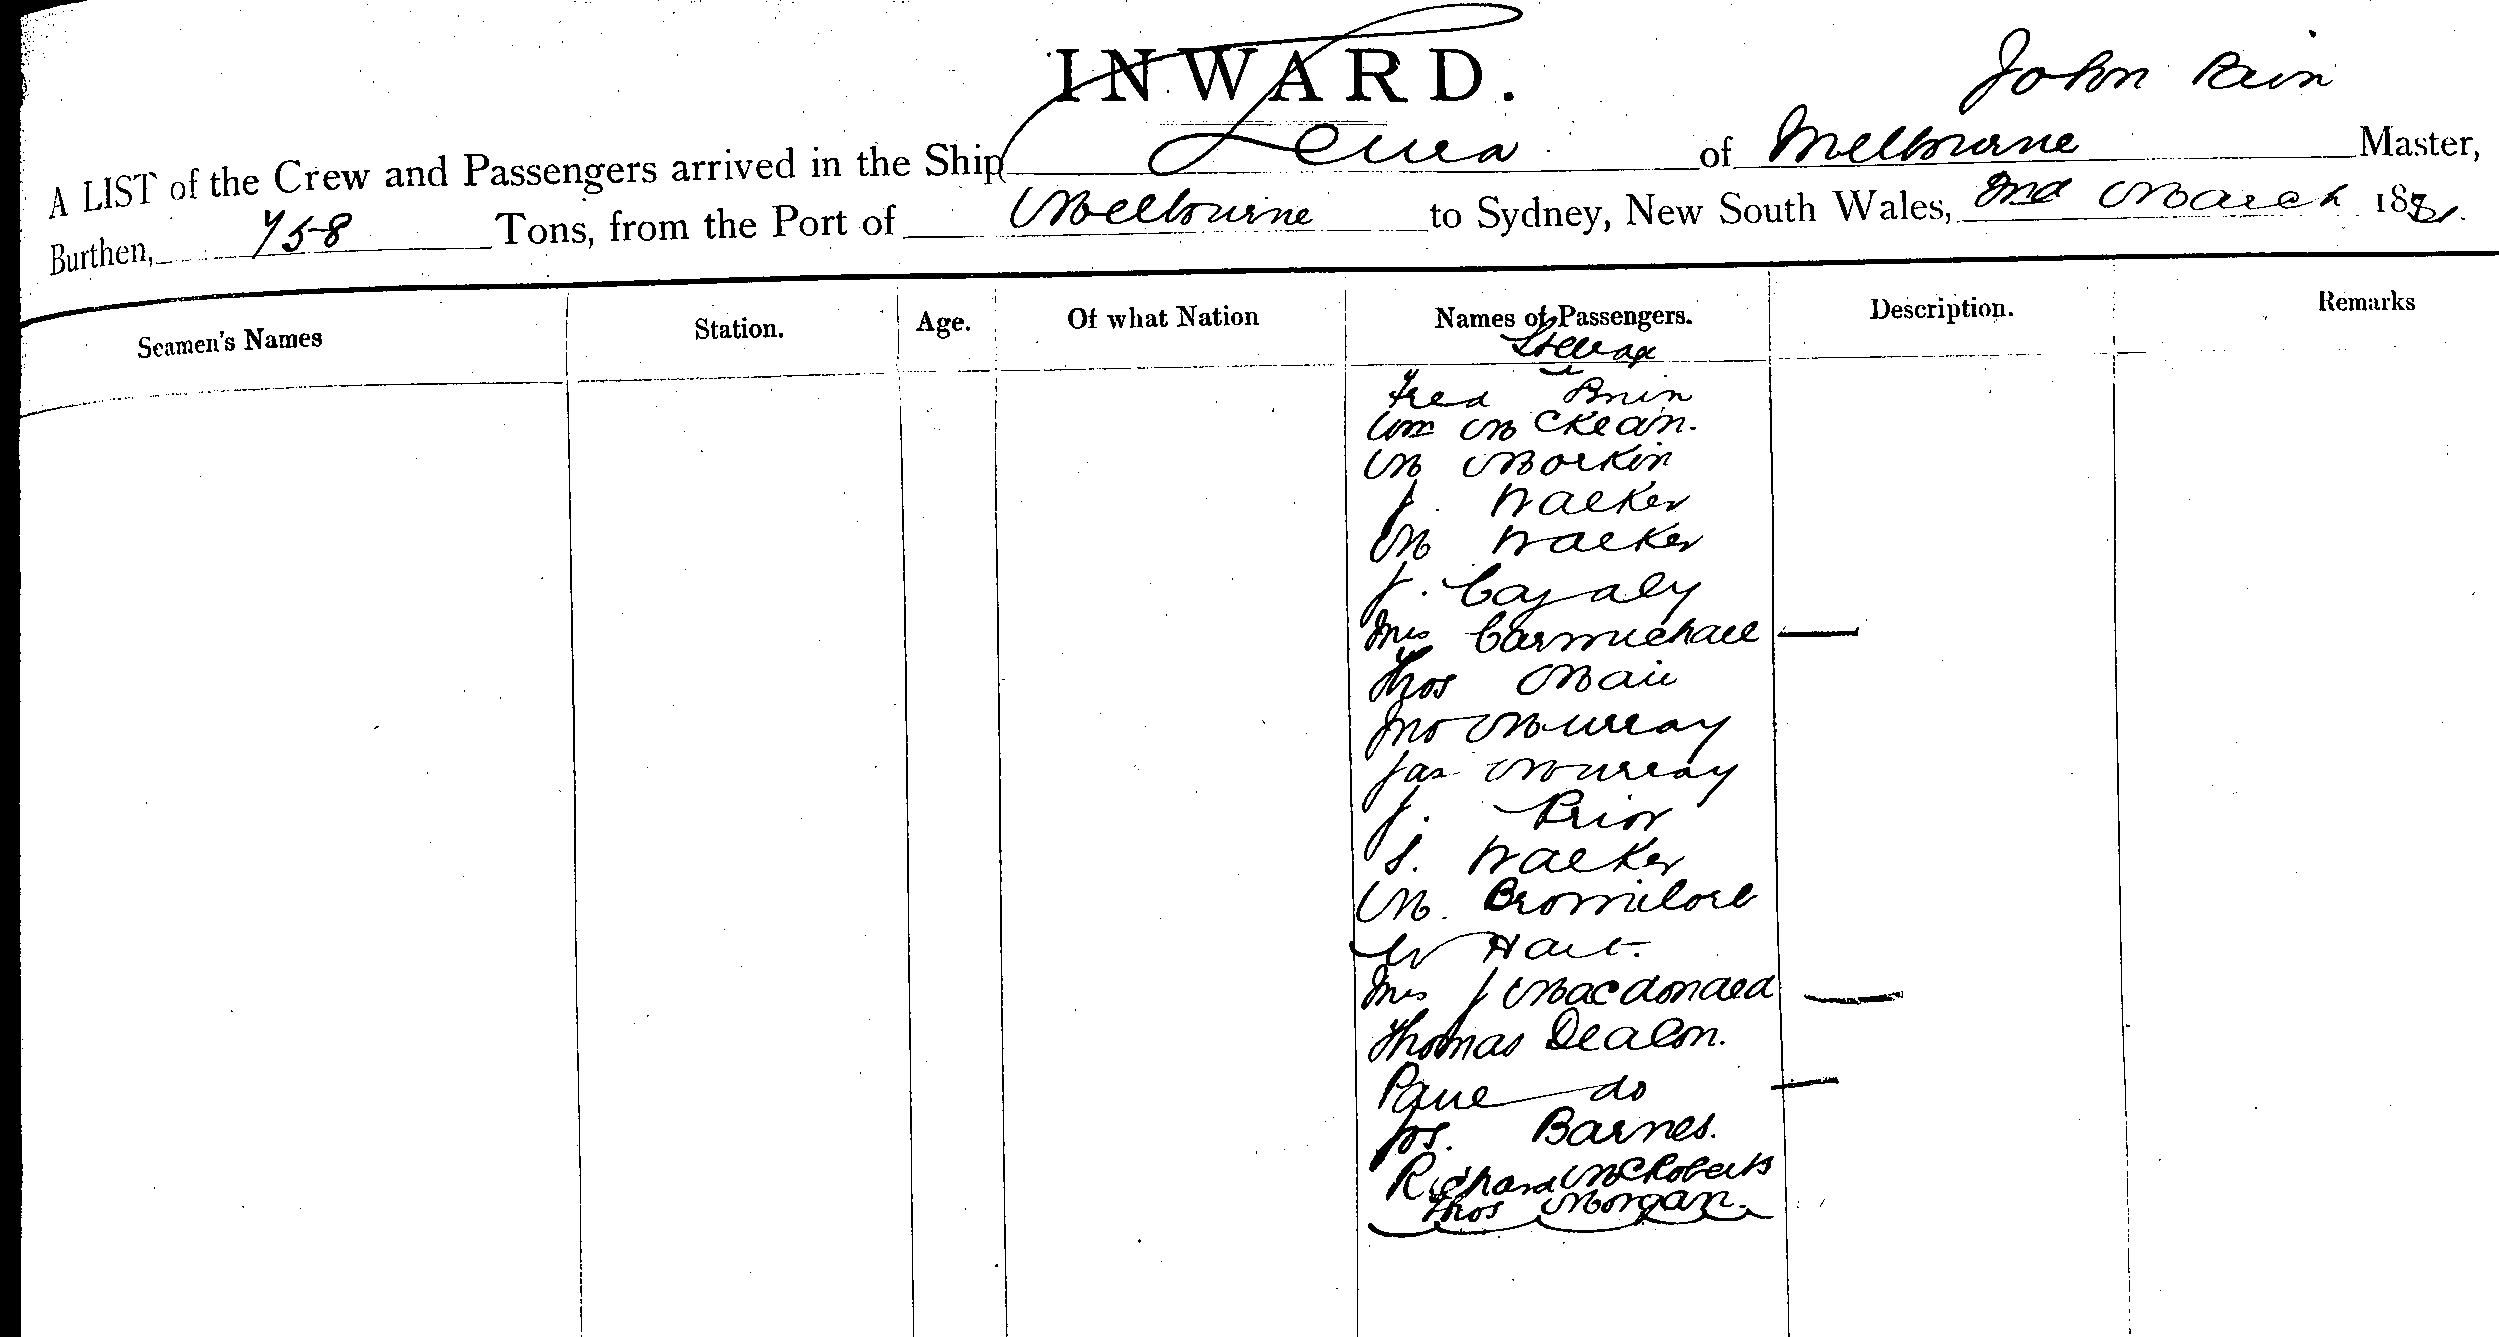 INWARD.
John Pain
A LIST of the Crew and Passengers arrived in the Ship of Melbourne Master,
Burthen, 758 Tons, from the Port of Melbourne to Sydney, New South Wales, 2nd March 188
Seamen's Names Station. Age. Of what Nation Names of Passengers. Description. Remarks
Steerage
Fred
Wm McKean.
M Morkin
J. Walker
M Walker
J.
Mrs Carmichael
Thos Mair
Jno Murray
Jas Murray
J. Prior
S. Walker
M.
W Hart.
Mrs J Macdonald
Thomas Deacon.
do
Jos. Barnes.
Richard McRoberts
Thos Morgan.